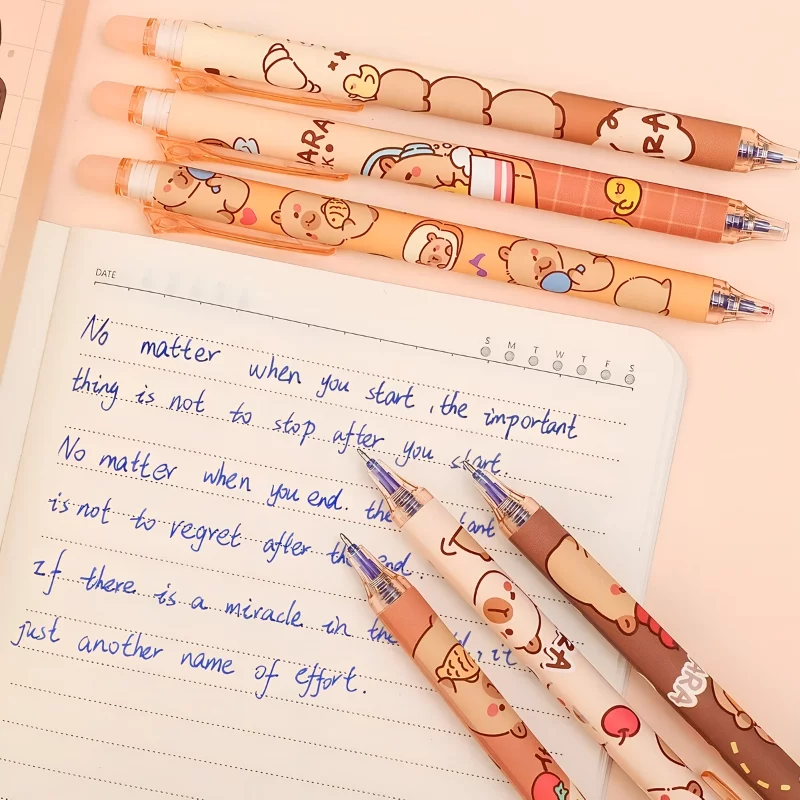 ARA
ARA
DATE
S M T W T F S
No matter when you start, the important
thing is not to stop after you start.
No matter when you end. the tant
is not to regret after th end.
If there is a miracle in the d, it
just another name of effort.
ARA